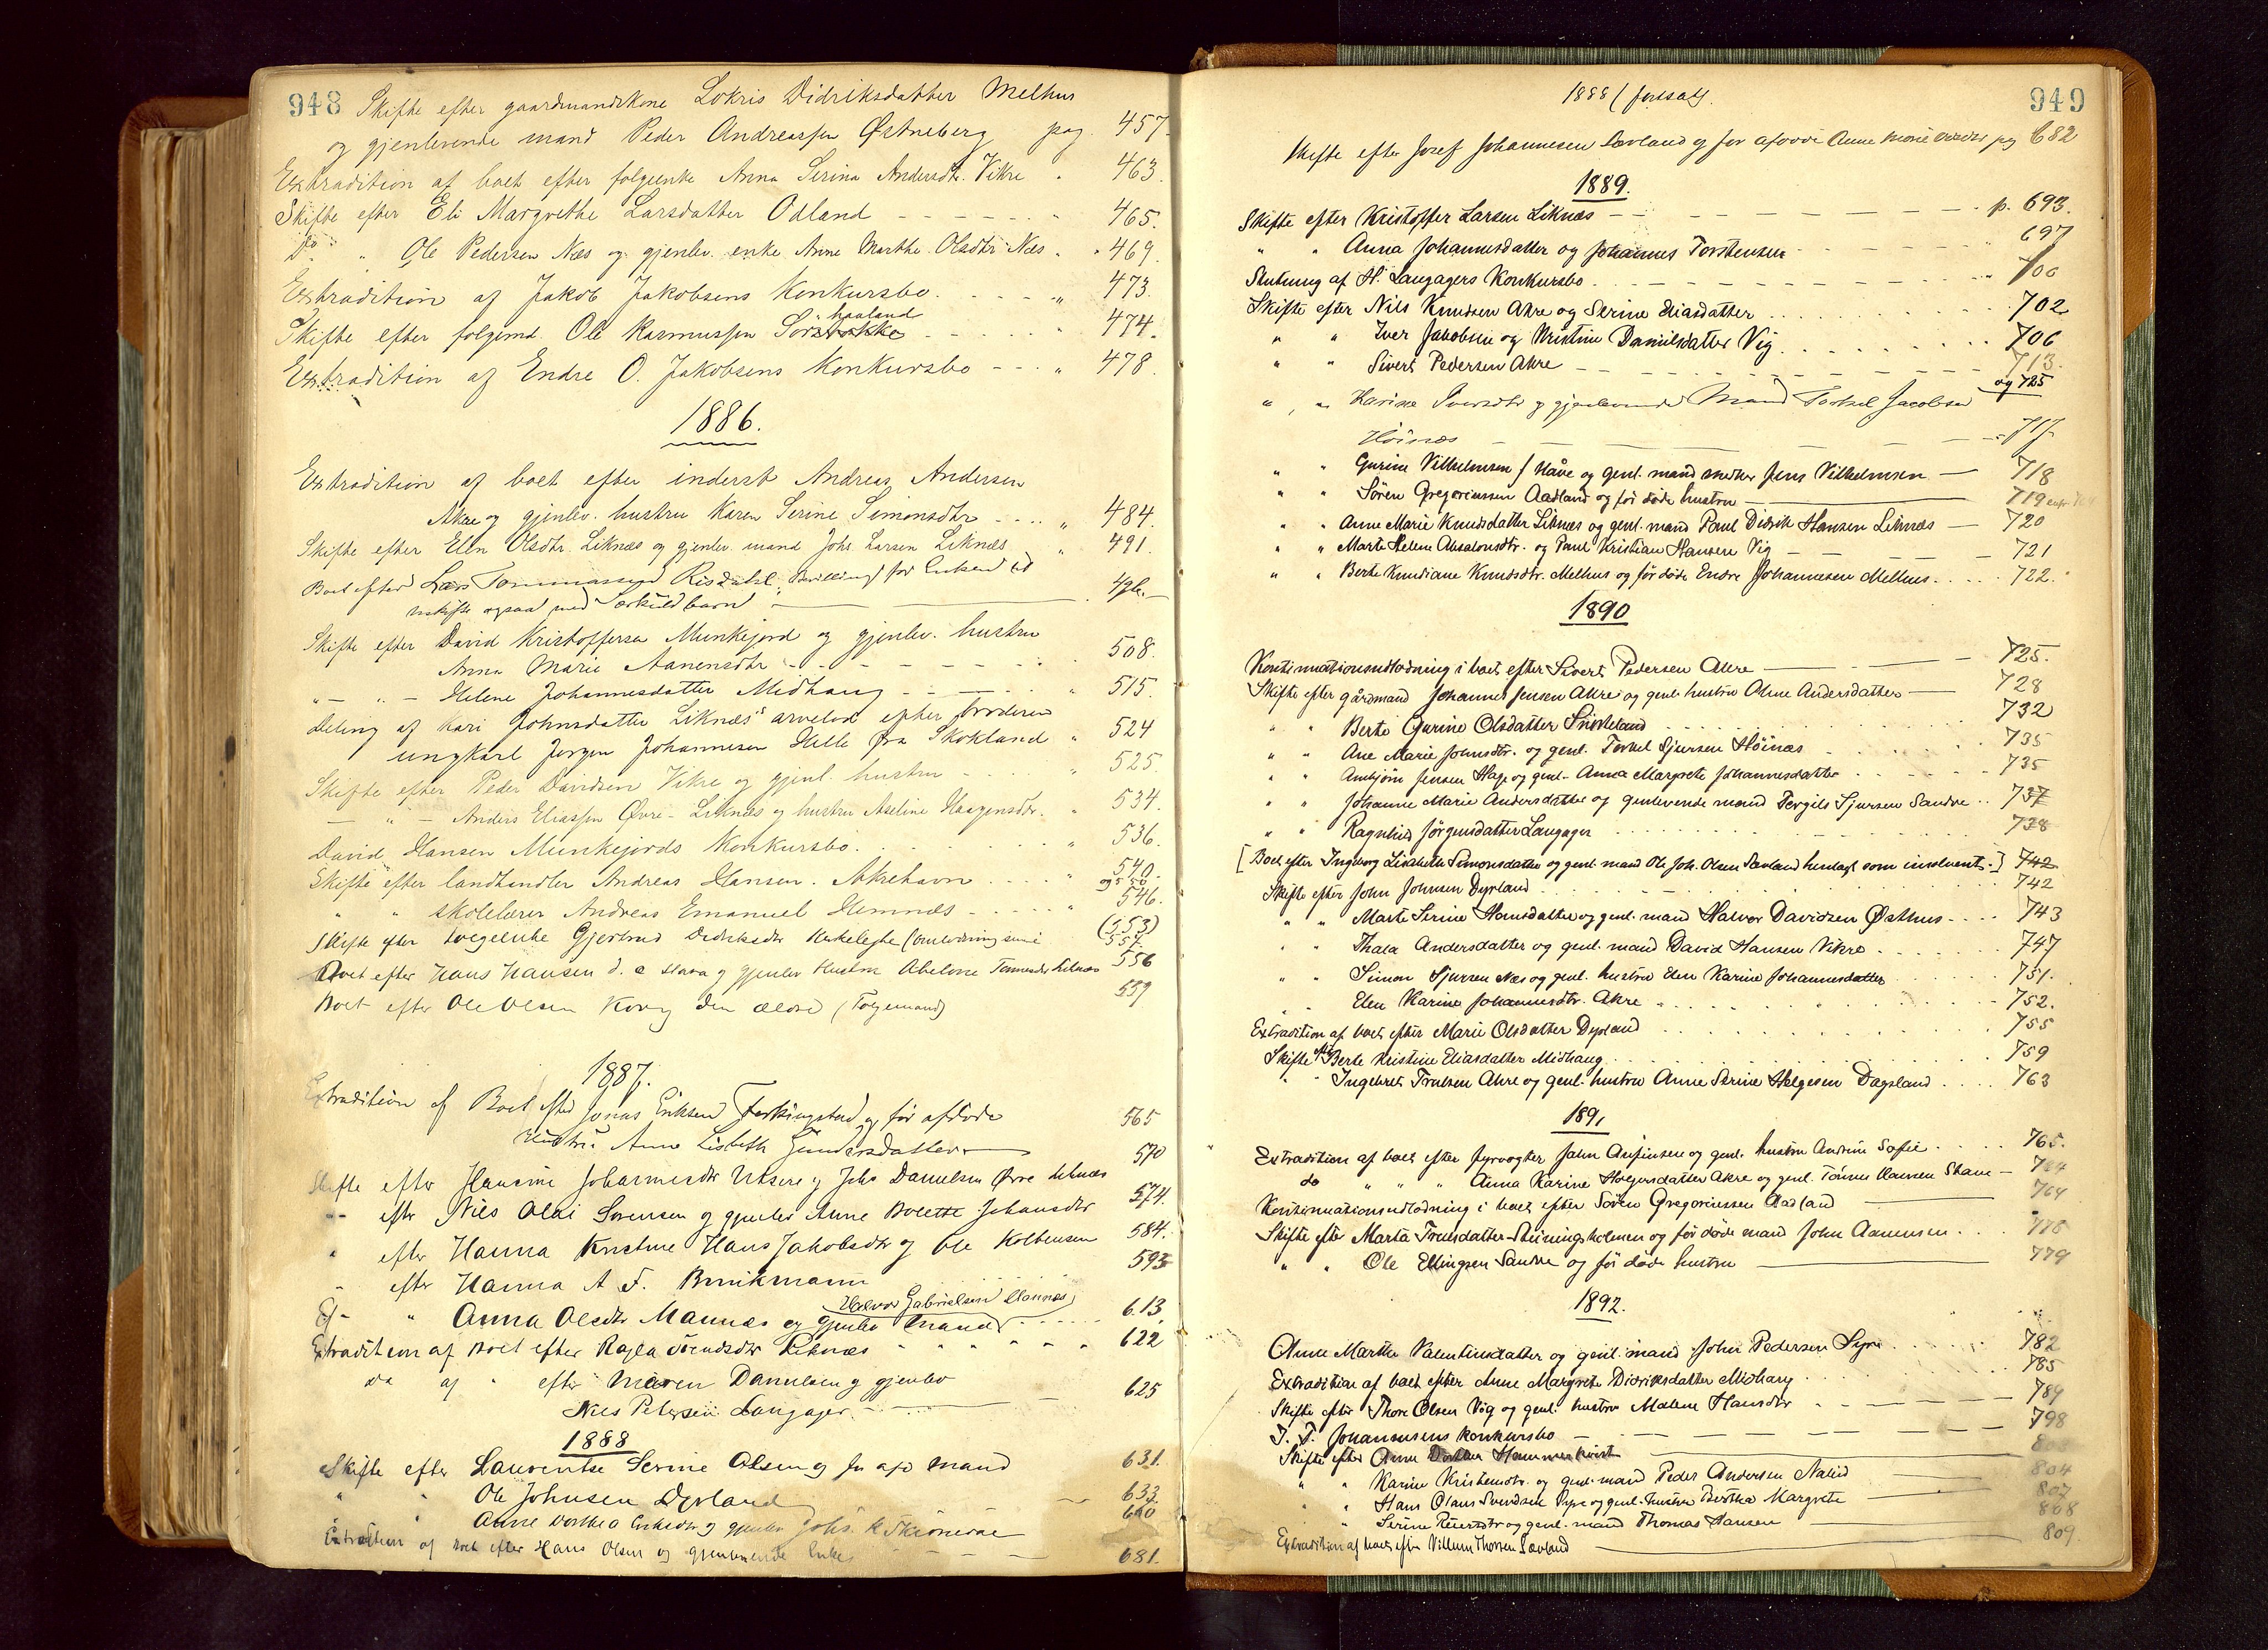 948
Skifte efter gaardmandskone Lokris Didriksdatter Melhus
og gjenlevende mand Peder Andreassen Østneberg pag. 457.
Extradition af boet efter folgeenke Anna Serina Andersdtr. Vikre " 463.
Skifte efter Eli Margrethe Larsdatter Odland - - - - - - " 465.
Do " Ole Pedersen Næs og gjenlev. enke Anne Marthe Olsdtr Næs " 469.
Extradition af Jakob Jakobsens Konkursbo. - - - - " 473.
haaland
Skifte efter folgemd. Ole Rasmussen Sørstokke - - - - " 474.
Extradition af Endre O. Jakobsens Konkursbo - - - " 478.
1886.
Extradition af boet efter inderst Andreas Andersen
Akre og gjenlev. hustru Karen Serine Simonsdtr - - - - " 484.
Skifte efter Elen Olsdtr. Liknæs og gjenlev. mand Johs. Larsen Liknæs " 491.
Boet efter Lars Tommassen Risdahl, Bevilling for Enken til
uskifte ogsaa med Særkuldbarn -
Skifte efter David Kristoffersen Munkejord og gjenlev. hustru
Anna Marie Aanensdtr - - - - - - - 508.
" - " - Helene Johannesdatter Midhaug - - - - - " 515.
Deling af Kari Johnsdatter Liknæs' arvelod efter broderen
ungkarl Jørgen Johannesen Hille fra Skokland " 524
Skifte efter Peder Davidsen Vikre og gjenl. hustru - - - - " 525.
— " — Anders Eliassen Øvre-Liknæs og hustru Aseline Haagensdtr. " 534.
David Hansen Munkejords Konkursbo. . . . . . . " 536.
Skifte efter landhandler Andreas Hansen. Akrehavn . . . . " 540.
og 550
" " skolelærer Andreas Emanuel Hemnæs - - - - - " 546.
Skifte efter Gjertrud Didriksdtr (553)
557.
Boet efter Hans Hansen d. æ Stava og gjenlev Hustru Abelone Tønnesdtr Liknæs 556
Boet efter Ole Olsen Korg den ældre (Folgemand) 559
1887.
Extradition af Boet efter Jonas Eriksen Ferkingstad og før afdøde
Hustru Anne Lisbeth Gundersdatter — 565
Skifte efter Hansine Johannesdtr Utsere og Johs Danielsen Øvre Liknæs 570
" efter Nils Olai Sørensen og gjenlev Anne Bolette Johansdtr 574.
" efter Hanna Kristine Hans Jakobsdtr og Ole Kolbensen 584.
" efter Hanna A F. Brinkmann 593
Halvor Gabrielsen Mannæs
" Anna Olsdtr Mannæs og gjenlev mand . . . . . 613.
Extradition af Boet efter Ragla Sveendsdtr Liknæs " " " " " 622
do af " efter Maren Danielsen og gjenlev
Nils Petersen Langager. - - — 625
1888
Skifte efter Laurentse Serine Olsen og før afd mand 631.
" " Ole Johnsen Dyrland — 633.
Anne Dorthea Eriksdtr og gjenlev Johs. K Skeiseide 640
Extradition af Boet efter Hans Olsen og gjenlevende Enke - - - - 681.
949
1888 / fortsat/.
Skifte efter Josef Johannesen Sævland og før afdøde Anne Marie pag 682
1889.
Skifte efter Kristoffer Larsen Liknæs — — — — — — — — p. 693.
" " Anna Johannesdatter og Johannes Torstensen - - - - - 697
Slutning af H. Langagers Konkursbo. — — — — — — — 700
Skifte efter Nils Knudsen Akre og Serine Eliasdatter . . . . . . . . . . 702
" " Iver Jakobsen og Kristine Danielsdatter Vig . . . . . . . . . 706
" " Sivert Pedersen Akre — — — — — — — — 713.
og 725
" " Karine Iversdtr og gjenlevende Mand Torkel Jacobsen
Høinæs — — — — — — — 717
" " Gurine Vilhelmsen / Håve og genl. mand snedker Jens Vilhelmsen — 718
" " Søren Gregoriussen Aadland og før døde hustru — 719
" " Anne Marie Knudsdatter Liknæs og genl. mand Paul Didrik Hansen Liknæs — 720
" " Marte Helene Absalonsdtr. og Paul Kristian Hansen Vig — — — 721
" " Berte Knudiane Knudsdtr. Melhus og før døde Endre Johannesen Melhus. . . . 722.
1890
Kontinuationsudlodning i boet efter Sivert Pedersen Akre — — — 725.
Skifte efter gårdmand Johannes Jensen Akre og genl. hustru Oline Andersdatter — 728
" " Berte Gurine Olsdatter Snørteland . . . . . . . . 732
" " Ane Marie Johnsdtr. og genl. Torkel Sjursen Høinæs . . . . . . . 735
" " Anbjørn Jensen Hage og genl. Anna Margrete Johannesdatter . . . . . . 735
" " Johanne Marie Andersdatter og genlevende mand Torgils Sjursen Sandve . . 737
" " Ragnhild Jørgensdatter Langager . . . . . . . . . 738
[Boet efter Ingeborg Lisabeth Simonsdatter og genl. mand Ole Joh. Olsen Sævland henlagt som insolvent.] 742
Skifte efter John Johnsen Dyrland . . . . . . . . . . . 742
" " Marte Serine Hansdatter og genl. mand Halvor Davidsen Østhus - . . . 743
" " Thala Andersdatter og genl. mand David Hansen Vikre . . . . . . 747
" " Simon Sjursen Næs og genl. hustru Elen Karine Johannesdatter . . . . 751.
" " Elen Karine Johannesdtr. Akre . . . . . . . . . . . 752.
Extradition af boet efter Marie Olsdatter Dyrland . . . . . . . . 755
Skifte efter Berte Kristine Eliasdatter Midhaug . . . . . . . . . 759
" " Ingebret Trulsen Akre og genl. hustru Anne Serine Helgesen Dagsland . . . . 763
1891
Extradition af boet efter fyrvogter John Arijinsen og genl. hustru Andrine Sofie . . . . . 765.
do " " " Anna Karine Holgersdatter Akre og genl. Tønnes Hansen Stave — 764
Kontinuationsudlodning i boet efter Søren Gregoriussen Aadland — 764
Skifte efter Marta Trulsdatter-Steiningsholmen og før døde mand John Aanensen . . . 778
" " Ole Ellingsen Sandve og før døde hustru — 779
1892.
Anne Marthe Valentinsdatter og genl. mand John Pedersen Syre . . . . . . 782
Extradition af boet efter Anne Margrete Didriksdatter Midhaug . . . . . . . 785
Skifte efter Thore Olsen Vig og genl. hustru Malene Hansdtr . - — — — 789
J. T. Johannesens konkursbo — — — — — — — 798
Skifte efter Anne Dorthea Hammerkvist —
" " Karine Kristensdtr. og genl. mand Peder Andersen Nalid — 804
" " Hans Olaus Svendsen Syre og genl. hustru Bertha Margrete — 807
" " Serine Reiersdtr og genl. mand Thomas Hansen — 808
Extradition af boet efter Villum Thorsen Sævland — 809.